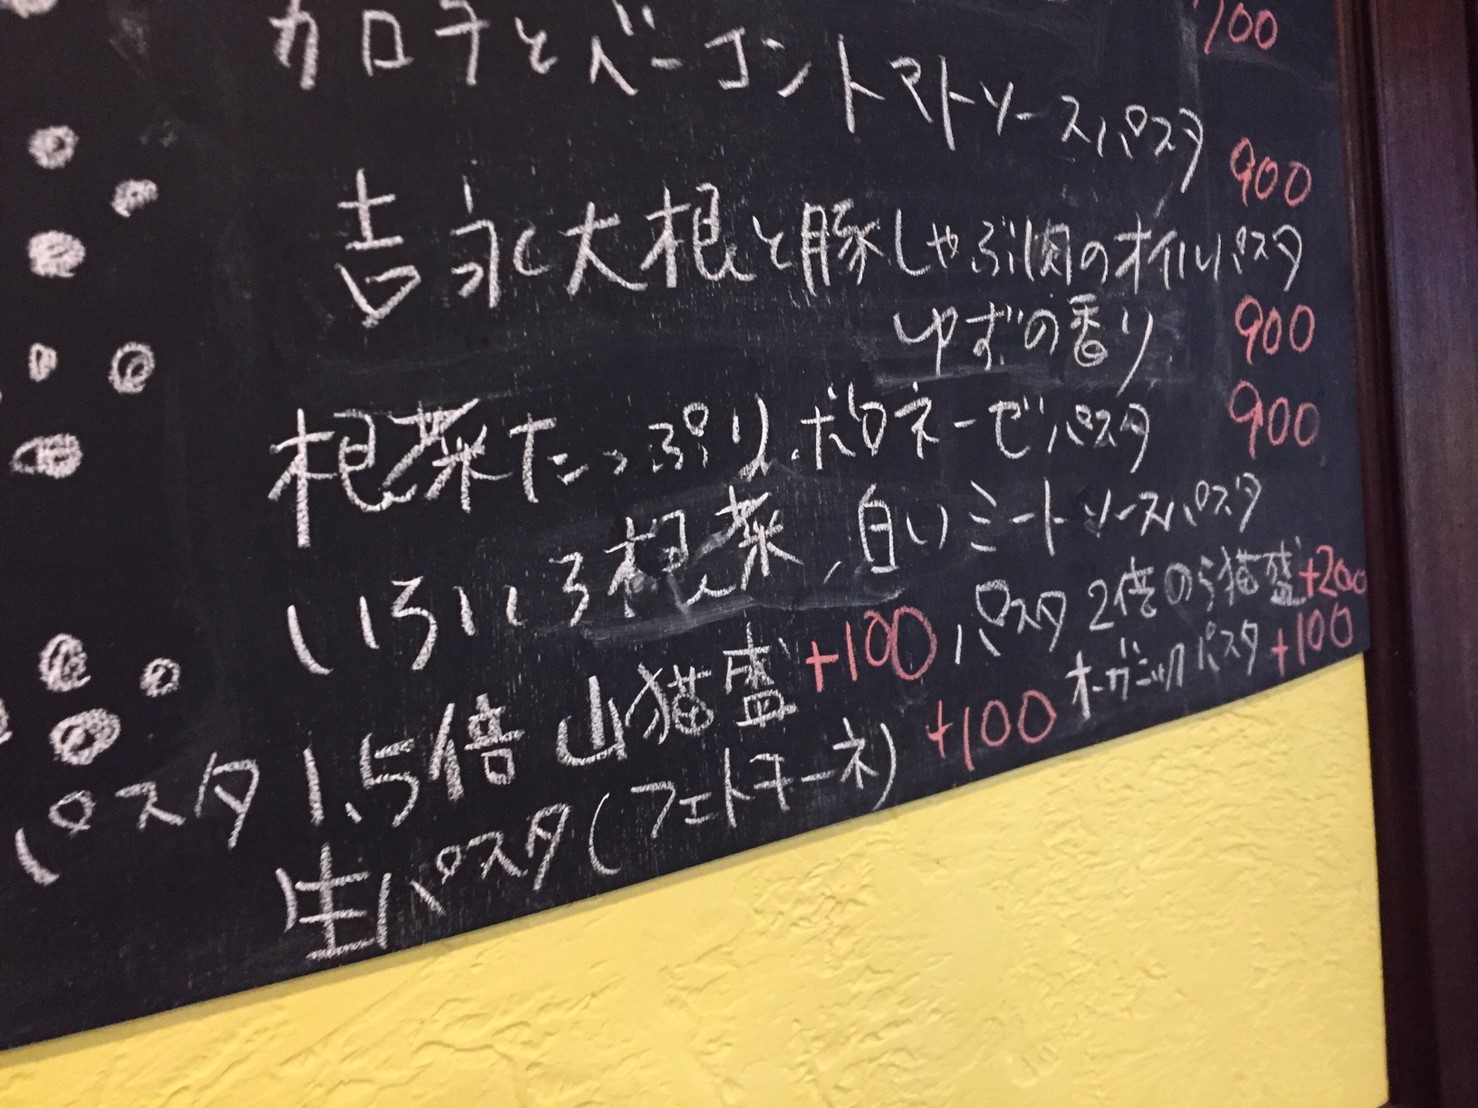 700
カロチとベーコントマトソースパスタ 900
吉永大根と豚しゃぶ肉のオイルパスタ
ゆずの香り 900
根菜たっぷり、ボロネーゼパスタ 900
いろいろ根菜、白いミートソースパスタ
パスタ1.5倍 山猫盛 +100 パスタ2倍のら猫盛 +200
生パスタ(フェトチーネ) +100 オーガニックパスタ +100